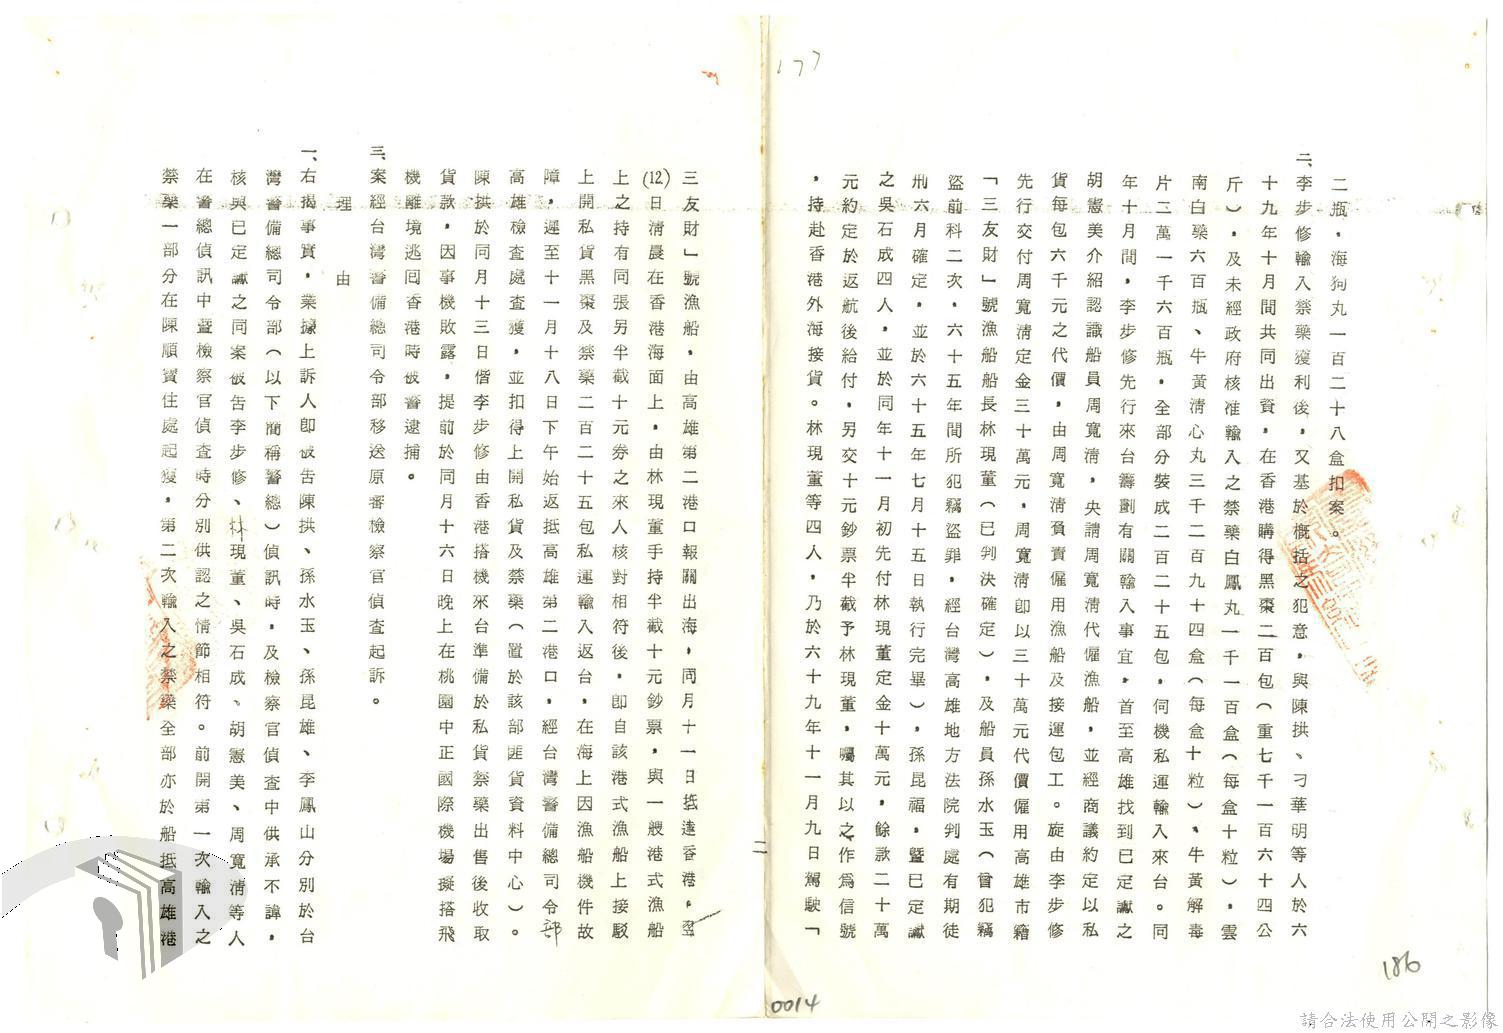 二瓶，海狗丸一百二十八盒扣案。
二、李步修輸入禁藥獲利後，又基於概括之犯意，與陳拱、刁華明等人於六
十九年十月間共同出資，在香港購得黑棗二百包（重七千一百六十四公
斤），及未經政府核准輸入之禁藥白鳳丸一千一百盒（每盒十粒），雲
南白藥六百瓶、牛黃清心丸三千二百九十四盒（每盒十粒）、牛黃解毒
片二萬一千六百瓶，全部分裝成二百二十五包，伺機私運輸入來台。同
年十月間，李步修先行來台籌劃有關輸入事宜，首至高雄找到已定讞之
胡憲美介紹認識船員周寬清，央請周寬清代僱漁船，並經商議約定以私
貨每包六千元之代價，由周寬清負責僱用漁船及接運包工。旋由李步修
先行交付周寬清定金三十萬元，周寬清即以三十萬元代價僱用高雄市籍
「三友財」號漁船船長林現董（已判決確定），及船員孫水玉（曾犯竊
盜前科二次，六十五年間所犯竊盜罪，經台灣高雄地方法院判處有期徒
刑六月確定，並於六十五年七月十五日執行完畢），孫昆福，暨已定讞
之吳石成四人，並於同年十一月初先付林現董定金十萬元，餘款二十萬
元約定於返航後給付，另交十元鈔票半截予林現董，囑其以之作為信號
，持赴香港外海接貨。林現董等四人，乃於六十九年十一月九日駕駛「
三友財」號漁船，由高雄第二港口報關出海，同月十一日抵達香港，翌
(12)日清晨在香港海面上，由林現董手持半截十元鈔票，與一艘港式漁船
上之持有同張另半截十元券之來人核對相符後，即自該港式漁船上接駁
上開私貨黑棗及禁藥二百二十五包私運輸入返台，在海上因漁船機件故
障，遲至十一月十八日下午始返抵高雄第二港口，經台灣警備總司令部
高雄檢查處查獲，並扣得上開私貨及禁藥（置於該部匪貨資料中心）。
陳拱於同月十三日偕李步修由香港搭機來台準備於私貨禁藥出售後收取
貨款，因事機敗露，提前於同月十六日晚上在桃園中正國際機場擬搭飛
機離境逃回香港時被警逮捕。
三、案經台灣警備總司令部移送原審檢察官偵查起訴。
理由
一、右揭事實，業據上訴人即被告陳拱、孫水玉、孫昆雄、李鳳山分別於台
灣警備總司令部（以下簡稱警總）偵訊時，及檢察官偵查中供承不諱，
核與已定讞之同案被告李步修、林現董、吳石成、胡憲美、周寬清等人
在警總偵訊中暨檢察官偵查時分別供認之情節相符。前開第一次輸入之
禁藥一部分在陳順寳住處起獲，第二次輸入之禁藥全部亦於船抵高雄港
二
177
186
0014
請合法使用公開之影像